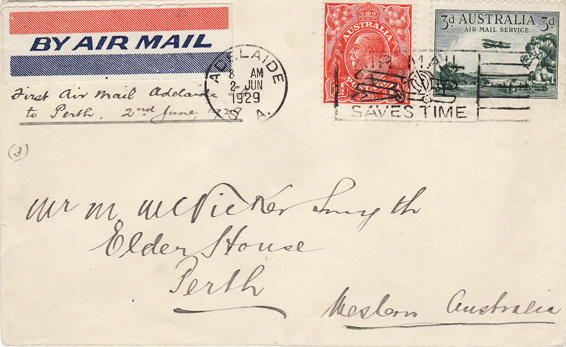 BY AIR MAIL
First Air Mail Adelaide
to Perth. 2nd June, 1929
ADELAIDE
8 AM
2 JUN
1929
S. A.
AUSTRALIA
3d AUSTRALIA 3d
AIR MAIL SERVICE
AIR MAIL
SAVES TIME
(3)
Mr M. McVicker Smyth
Elder House
Perth
Western Australia